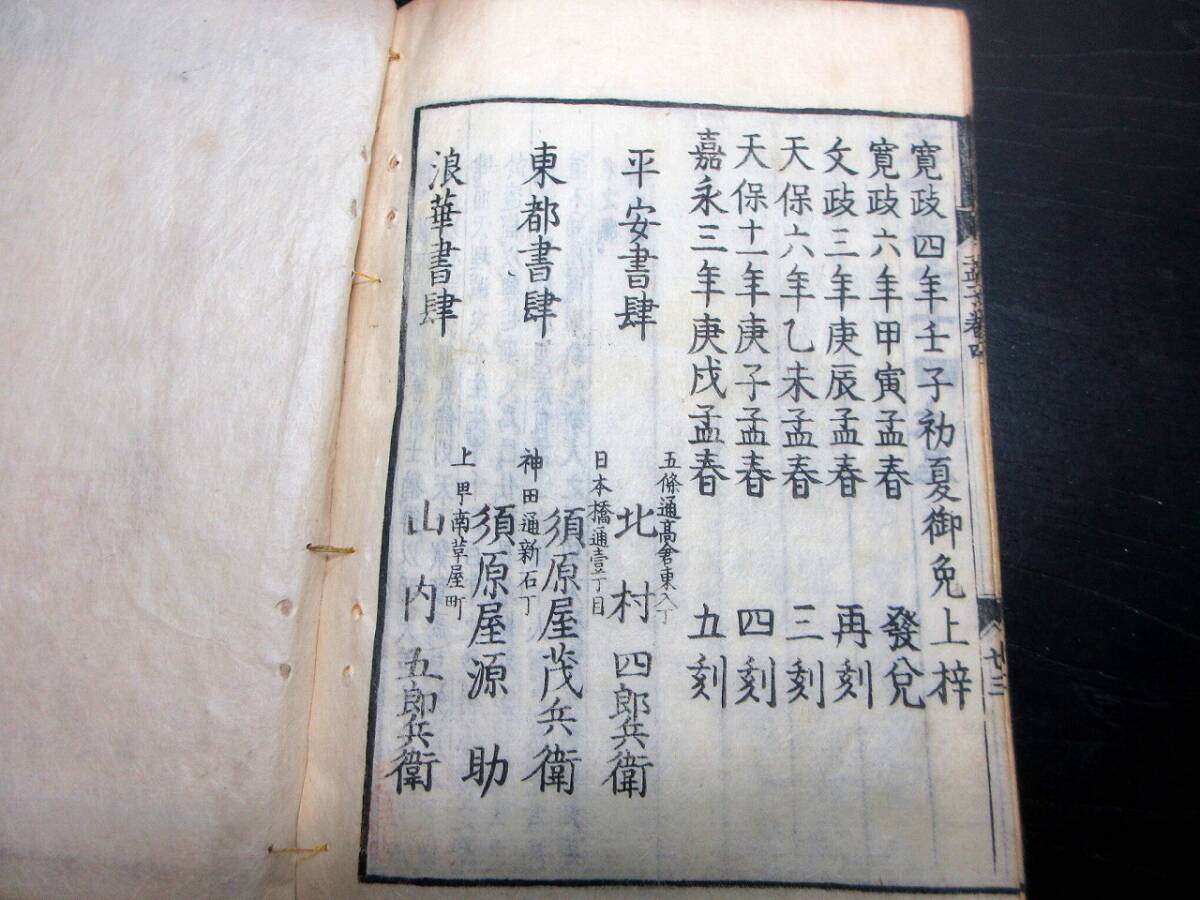 孟子卷四
廿三
寛政四年壬子初夏御免上梓
寛政六年甲寅孟春 發兌
文政三年庚辰孟春 再刻
天保六年乙未孟春 三刻
天保十一年庚子孟春 四刻
嘉永三年庚戌孟春 五刻
平安書肆
五條通高倉東入丁
北村四郎兵衛
東都書肆
日本橋通壹丁目
須原屋茂兵衛
神田通新石丁
須原屋源助
浪華書肆
上甼南草屋町
山内五郎兵衛